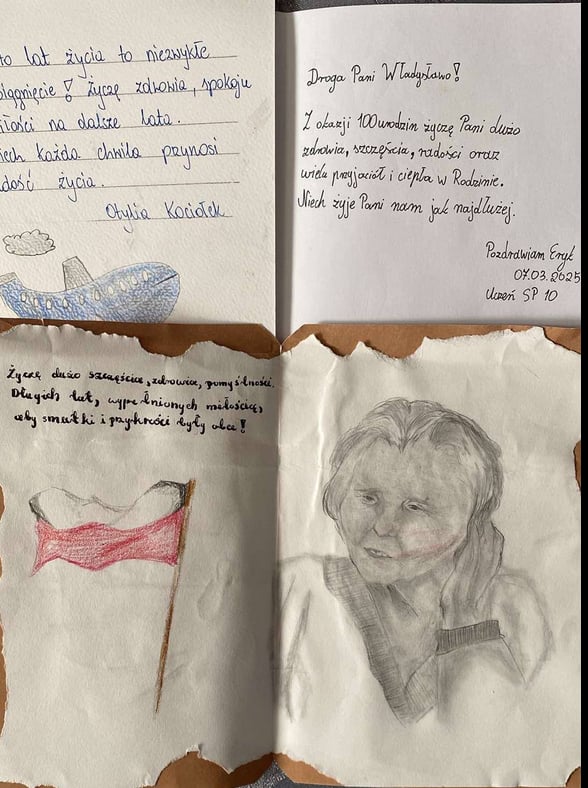 to lat życia to niezwykłe
iągnięcie! Życzę zdrowia, spokoju
iłości na dalsze lata.
iech każda chwila przynosi
dość życia.
Otylia Kociołek
Droga Pani Władysławo!
Z okazji 100 urodzin życzę Pani dużo
zdrowia, szczęścia, radości oraz
wielu przyjaciół i ciepła w Rodzinie.
Niech żyje Pani nam jak najdłużej.
Pozdrawiam Eryk
07.03.2025
Uczeń SP 10
Życzę dużo szczęścia, zdrowia, pomyślności.
Długich lat, wypełnionych miłością,
aby smutki i przykrości były obce!